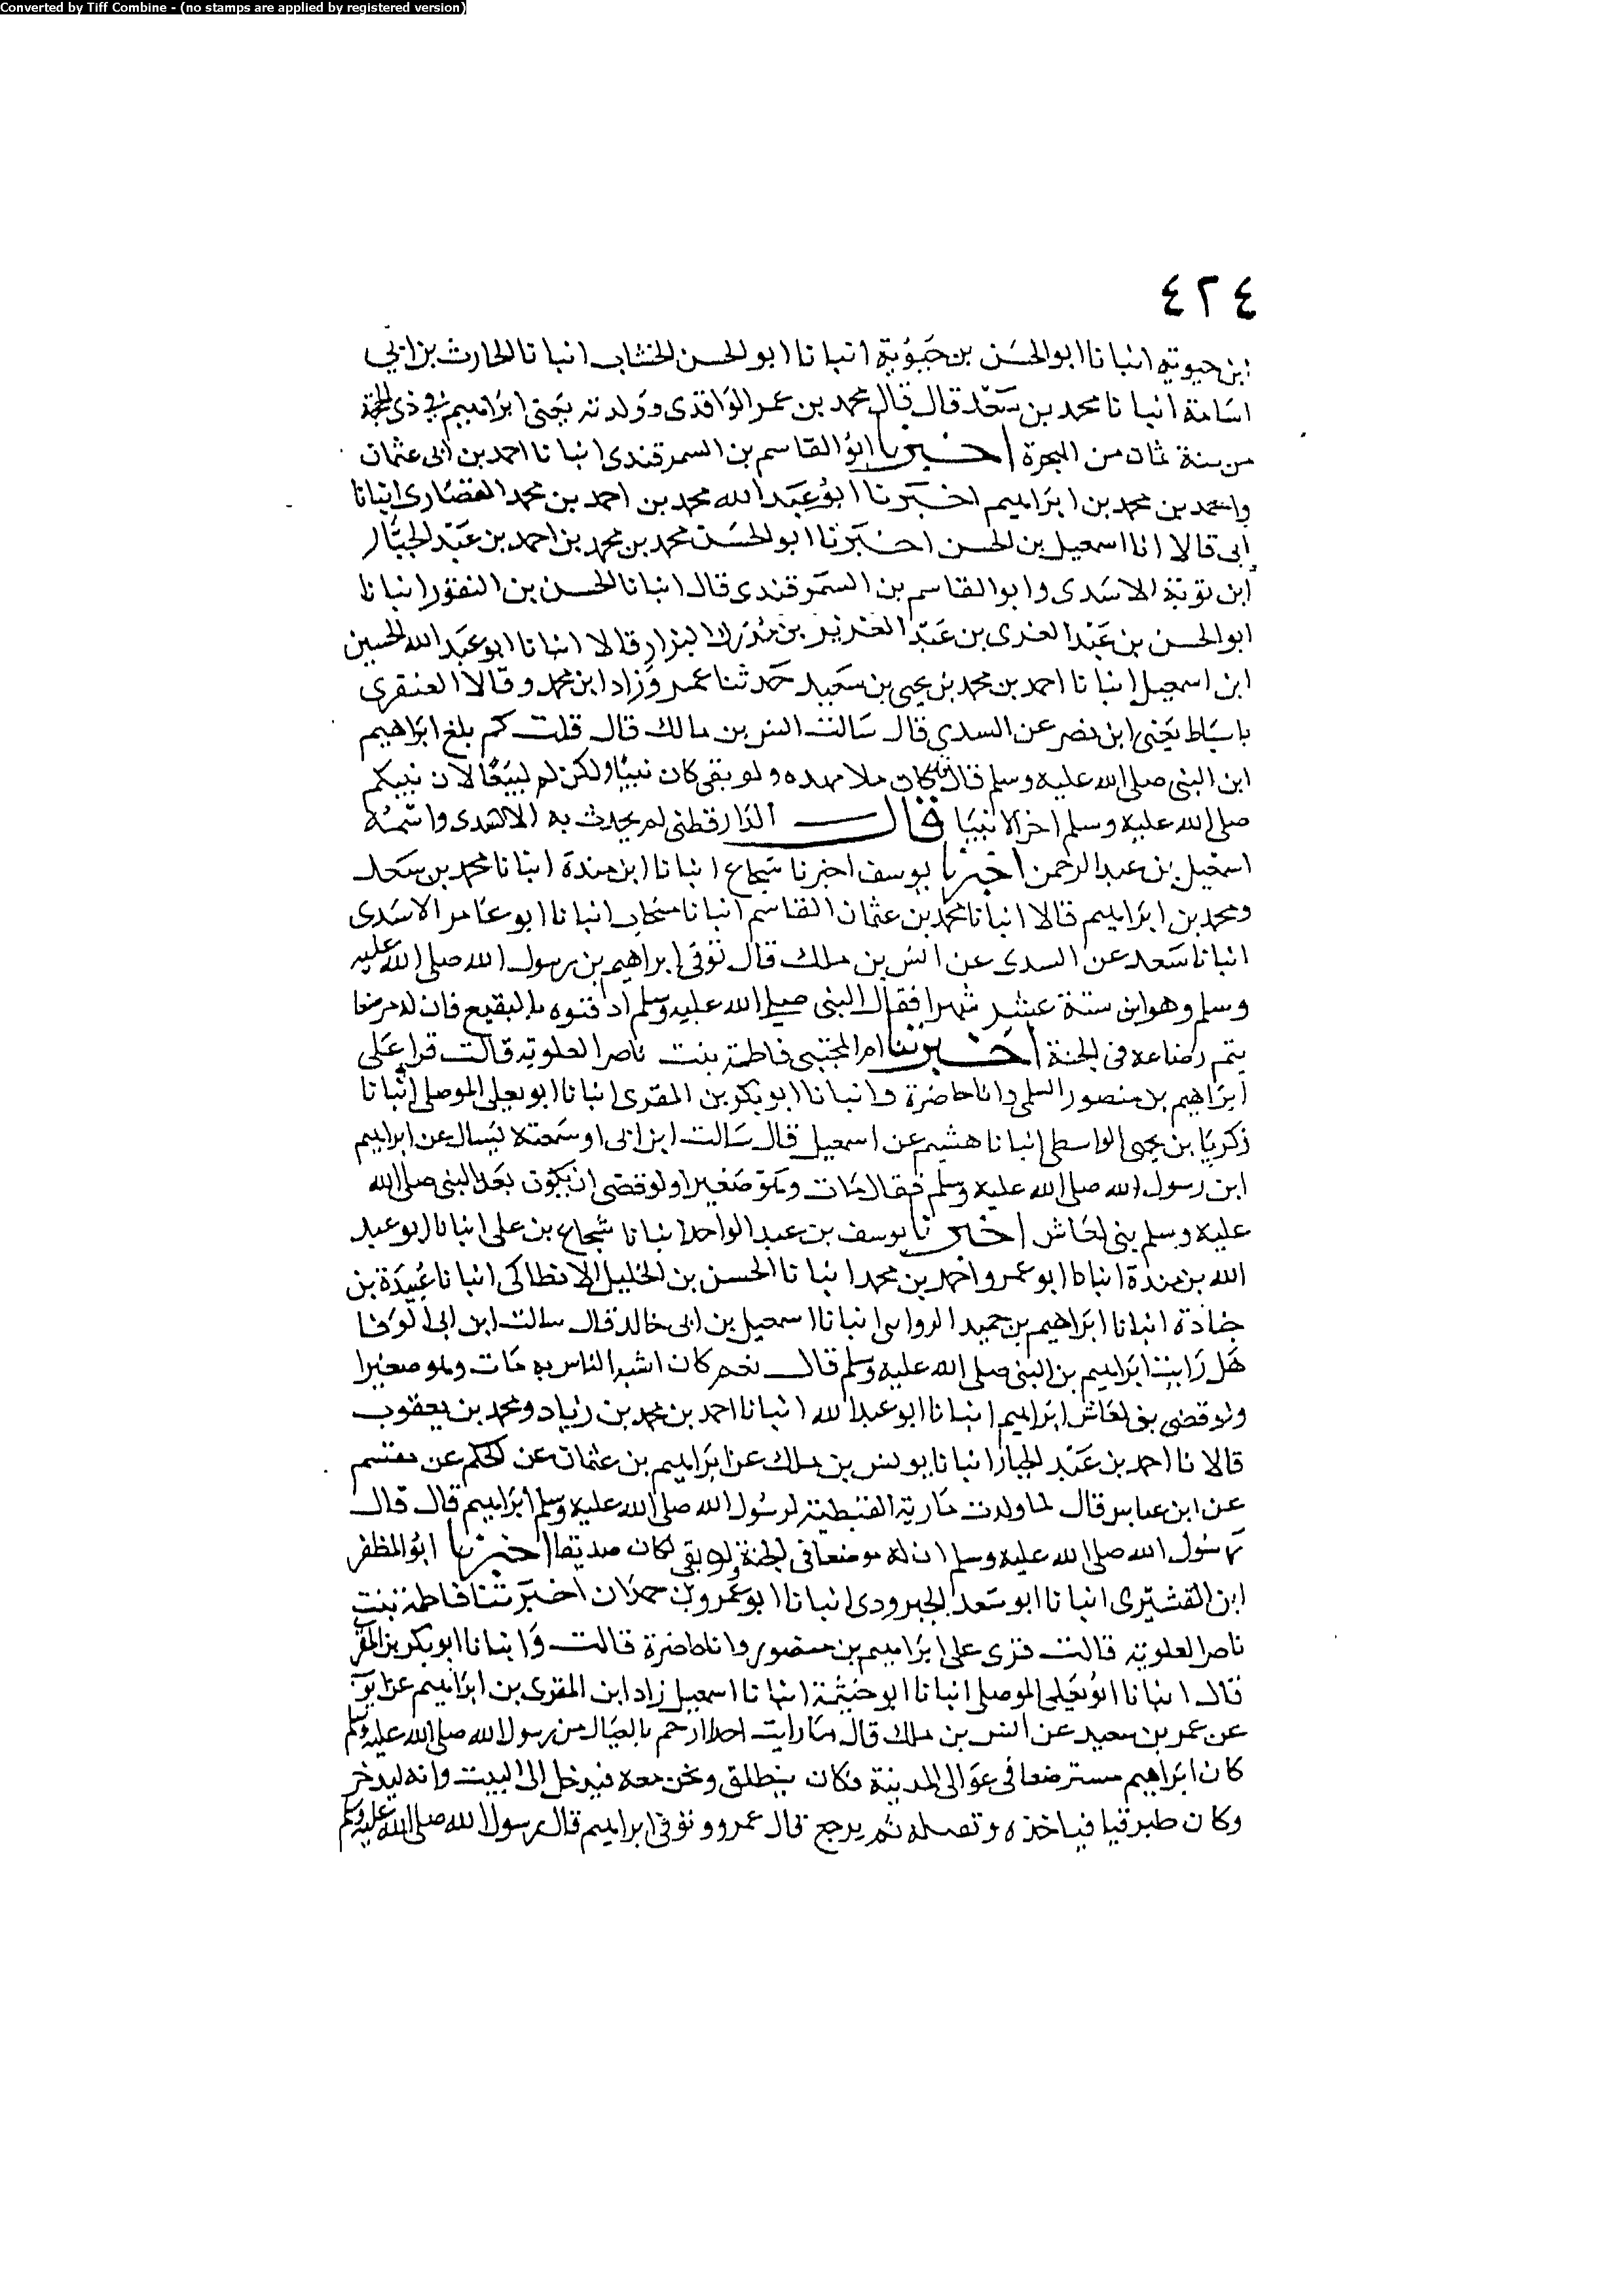 Converted by Tiff Combine - (no stamps are applied by registered version)
٤٢٤
ابن حيويه انبانا ابو الحسن بن حيوية انبانا ابو الحسن الخشاب انبانا الحارث بن ابي
اسامة انبانا محمد بن سعد قال قال محمد بن عمر الواقدى وولدته يعنى ابراهيم في ذى الحجة
من سنة ثمان من الهجرة اخبرنا ابو القاسم بن السمرقندى انبانا احمد بن ابى عثمان
واحمد بن محمد بن ابراهيم اخبرنا ابو عبد الله محمد بن احمد بن محمد القصارى انبانا
ابى قالا انا اسمعيل بن الحسن اخبرنا ابو الحسن محمد بن محمد بن احمد بن عبد الجبار
ابن توبة الاسدى وابو القاسم بن السمرقندى قال انبانا الحسن بن النقور انبانا
ابو الحسن بن عبد العزى بن عبد العزيز بن مدرك البزار قالا انبانا ابو عبد الله الحسين
ابن اسمعيل انبانا احمد بن محمد بن يحيى بن سعيد حدثنا عمر وزاد ابن محمد وقالا العنقرى
باسباط يعنى ابن نصر عن السدي قال سالت انس بن مالك قال قلت كم بلغ ابراهيم
ابن النبى صلى الله عليه وسلم قال كان ملا مهده ولو بقى كان نبيا ولكن لم ليبقا لان نبيكم
صلى الله عليه وسلم اخر الانبيا قال الدارقطنى لم يحدث به الا السدى واسمه
اسمعيل بن عبد الرحمن اخبرنا يوسف اخبرنا شجاع انبانا ابن مندة انبانا محمد بن سعد
ومحمد بن ابراهيم قالا انبانا محمد بن عثمان القاسم انبانا منجاب انبانا ابو عامر الاسدى
انبانا سعد عن السدى عن انس بن ملك قال توفى ابراهيم بن رسول الله صلى الله عليه
وسلم وهو ابن ستة عشر شهرا فقال النبى صلى الله عليه وسلم ادفنوه بالبقيع فان له مرضعا
يتم رضاعه فى الجنة اخبرتنا ام المجتبى فاطمة بنت ناصر العلوية قالت قرا على
ابراهيم بن منصور السلمى وانا حاضرة وانبانا ابو بكر بن المقرى انبانا ابو يعلى الموصلى انبانا
زكريا بن يحيى الواسطى انبانا هشيم عن اسمعيل قال سالت ابن ابى او سمعته ليسال عن ابراهيم
ابن رسول الله صلى الله عليه وسلم فقال مات وهو صغيرا ولو قضى ان يكون بعد النبى صلى الله
عليه وسلم بنى لعاش اخبرنا يوسف بن عبد الواحد انبانا شجاع بن على انبانا ابو عبد
الله بن مندة انبانا ابو عمرو احمد بن محمد انبانا الحسن بن الخليل الانطاكى انبانا عبيدة بن
جنادة انبانا ابراهيم بن حميد الرواسى انبانا اسمعيل بن ابى خالد قال سالت ابن ابى اوفا
هل رايت ابراهيم بن النبى صلى الله عليه وسلم قال نعم كان اشبه الناس به مات وهو صغيرا
ولو قضى بنى لعاش ابراهيم انبانا ابو عبد الله انبانا احمد بن محمد بن زياد ومحمد بن يعقوب
قالا نا احمد بن عبد الجبار انبانا يونس بن ملك عن ابراهيم بن عثمان عن الحكم عن مقسم
عن ابن عباس قال لما ولدت مارية القبطية لرسول الله صلى الله عليه وسلم ابراهيم قال قال
رسول الله صلى الله عليه وسلم ان له موضعا فى الجنة ولو بقى لكان صديقا اخبرنا ابو المظفر
ابن القشيرى انبانا ابو سعد الجبرودى انبانا ابو عمرو بن حمدان اخبرتنا فاطمة بنت
ناصر العلوية قالت قرى على ابراهيم بن منصور وانا حاضرة قالت وانبانا ابو بكر بن المقر
قال انبانا ابو يعلى الموصلى انبانا ابو خيثمة انبانا اسمعيل زاد ابن المقرى بن ابراهيم عن ايوب
عن عمر بن سعيد عن انس بن ملك قال ما رايت احدا ارحم بالعيال من رسول الله صلى الله عليه وسلم
كان ابراهيم مسترضعا فى عوالى المدينة فكان ينطلق ونحن معه فيدخل الى البيت وانه ليدخر
وكان طبرقيا فياخذه وتصله ثم يرجع قال عمرو وتوفى ابراهيم قال رسول الله صلى الله عليه وسلم